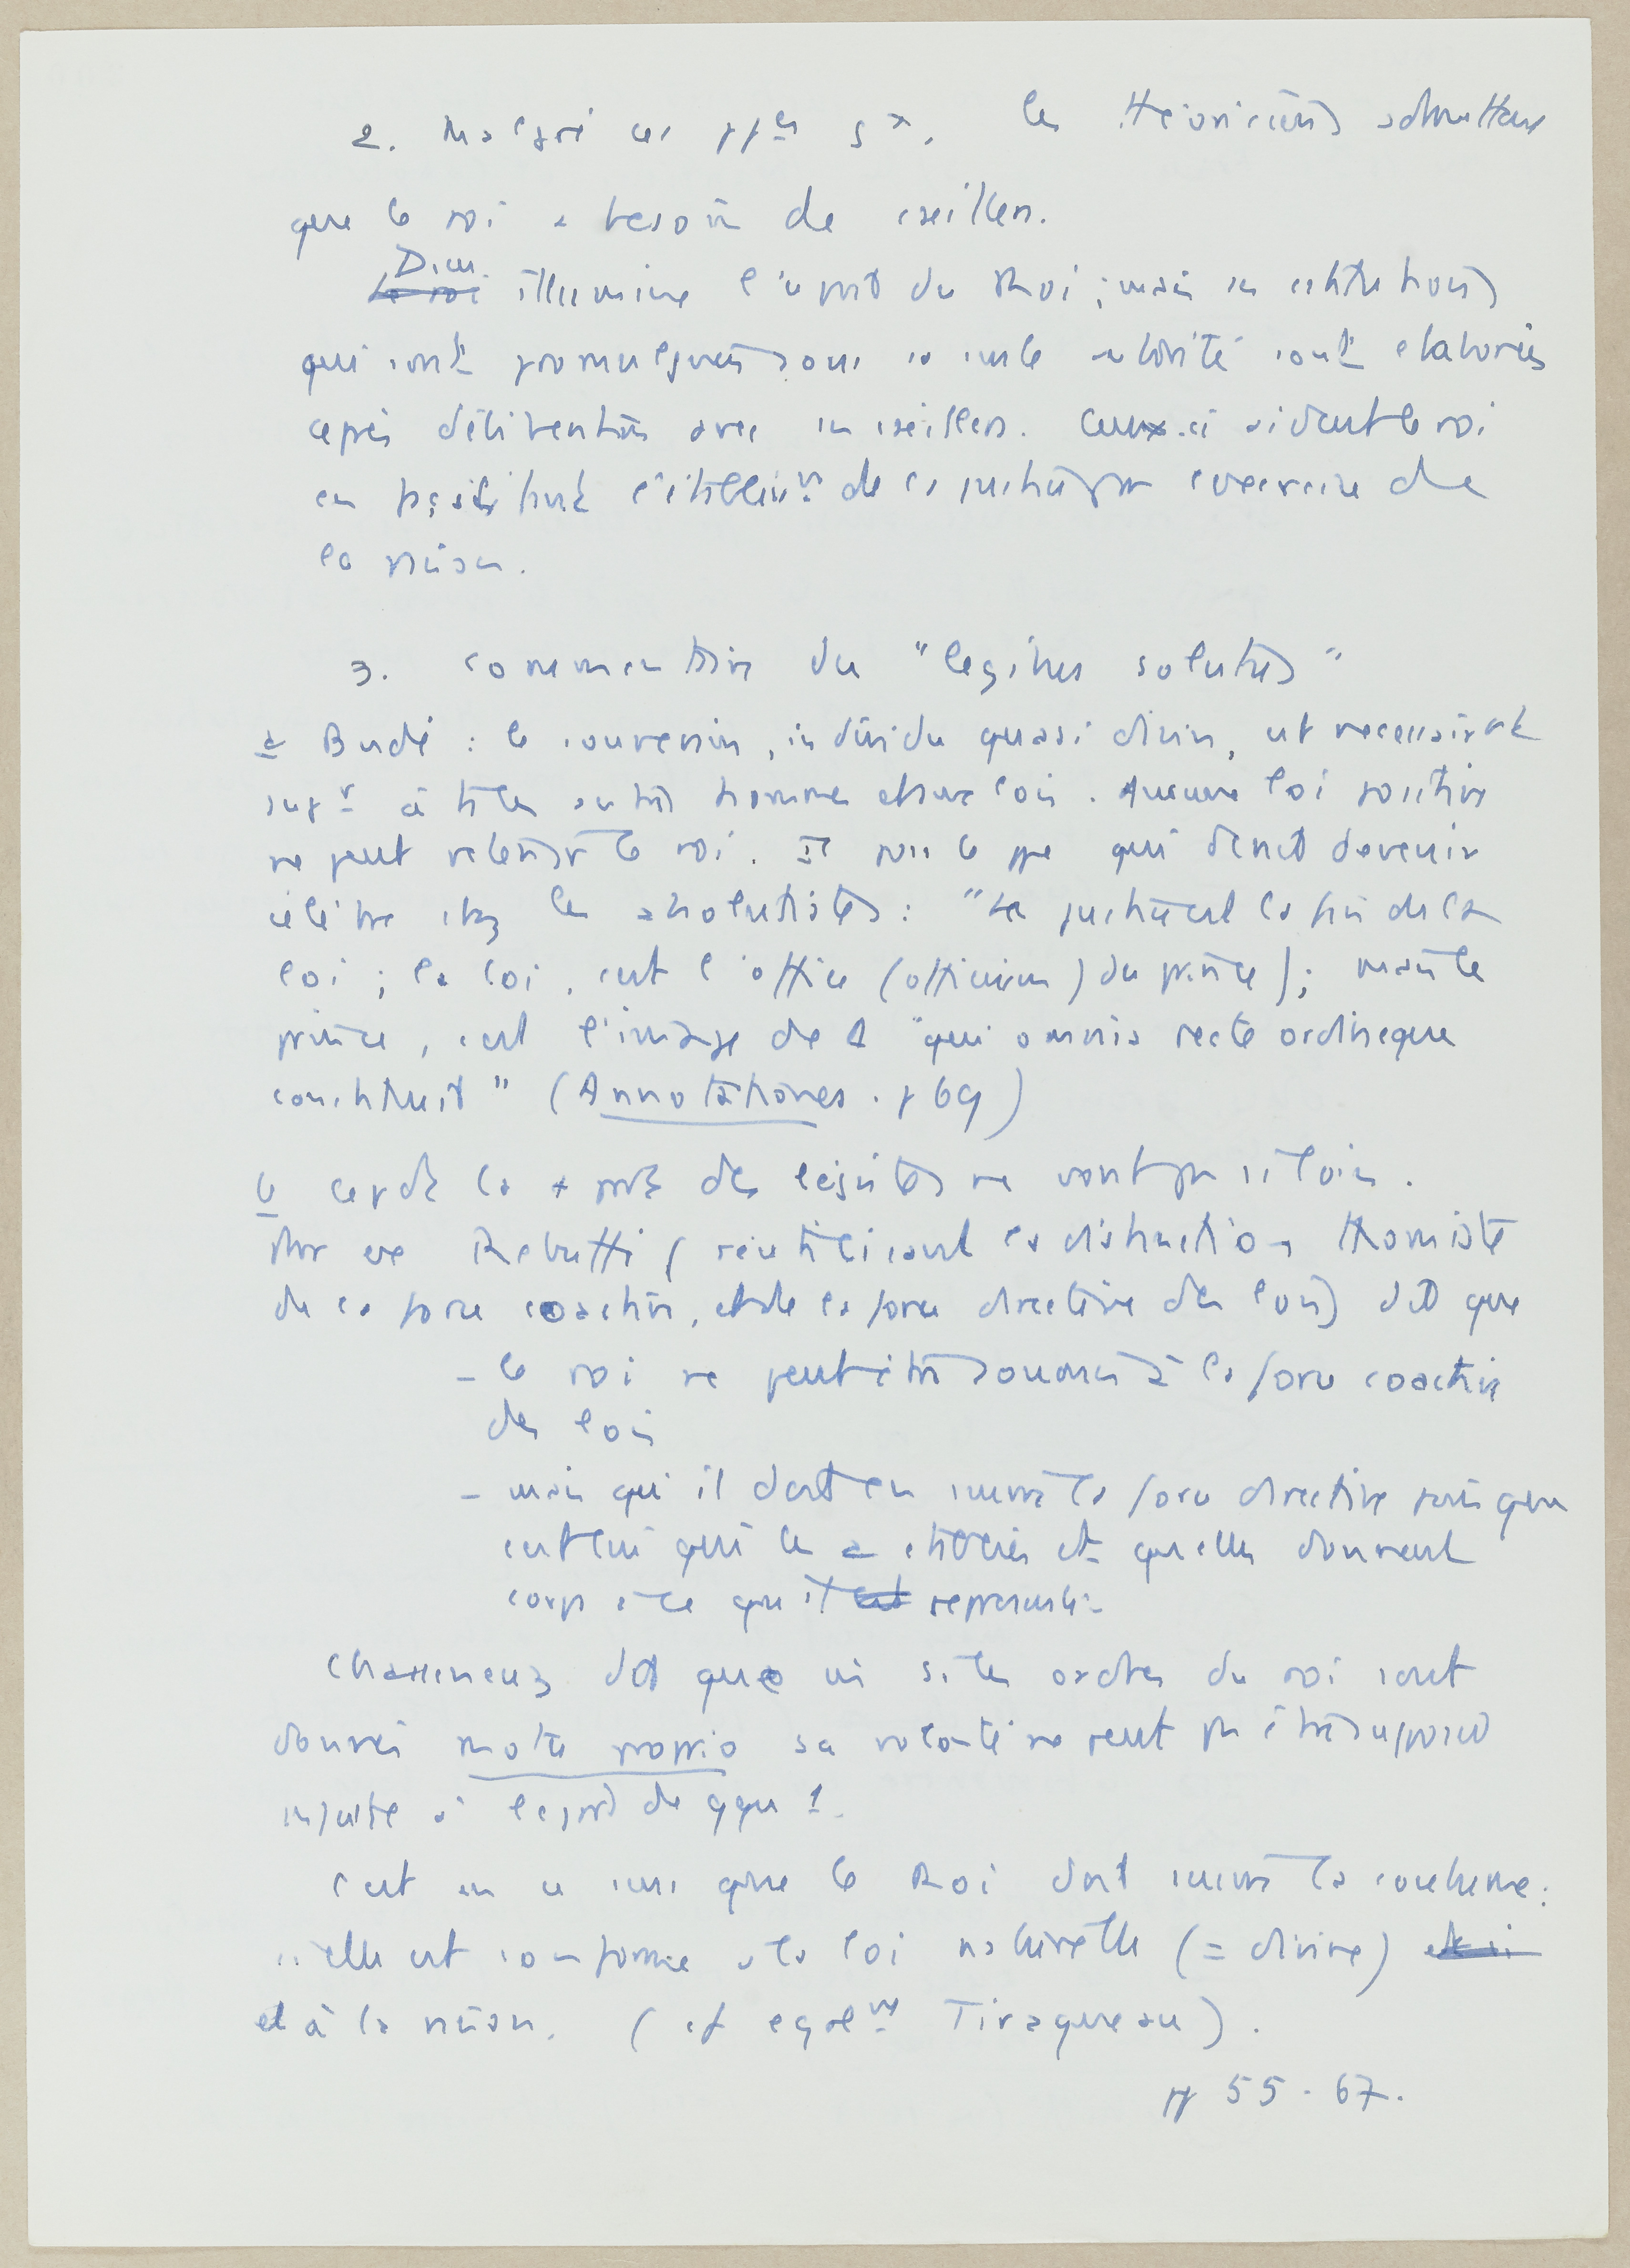 2. Malgré ces ppes gx, les théoriciens admettent
que le roi a besoin de cseillers.
Dieu illumine l'esprit du Roi ; mais les cstitutions
qui sont promulguées sous sa seule autorité sont élaborées
après délibération avec les cseillers. Ceux-ci aident le roi
en facilitant l'établissmt de la justice par exercice de
la raison.
3. commentaire du "legibus solutus"
a Budé : le souverain, individu quasi divin, est necessairemt
supr à ts les autres hommes et aux lois. Aucune loi positive
ne peut le roi. Il pose le ppe qui devait devenir
célèbre chez les absolutistes : "La justice est la fin de la
loi ; la loi, c'est l'office (officium) du prince) ; mais le
prince, c'est l'image de D "qui omnia recte ordineque
constituit" (Annotationes. p 69)
b cepdt la + part des légistes ne vont pas si loin.
Rebuffi (réutilisant la distinction thomiste
de la force coactive, et de la force directive des lois) dit que
- le roi ne peut être soumis à la force coactive
des lois
- mais qu'il doit en suivre la force directive parce que
c'est lui qui les a établies et qu'elles donnent
corps à ce qu'il represente
Chasseneuz dit que si les ordres du roi sont
donnés motu proprio sa volonté ne peut pas être supposée
injuste à l'egard de qqu 1.
C'est en ce sens que le Roi doit suivre la coutume :
si elle est conforme à la loi naturelle (= divine)
et à la raison. (cf egalemt Tiraqueau).
pp 55-67.